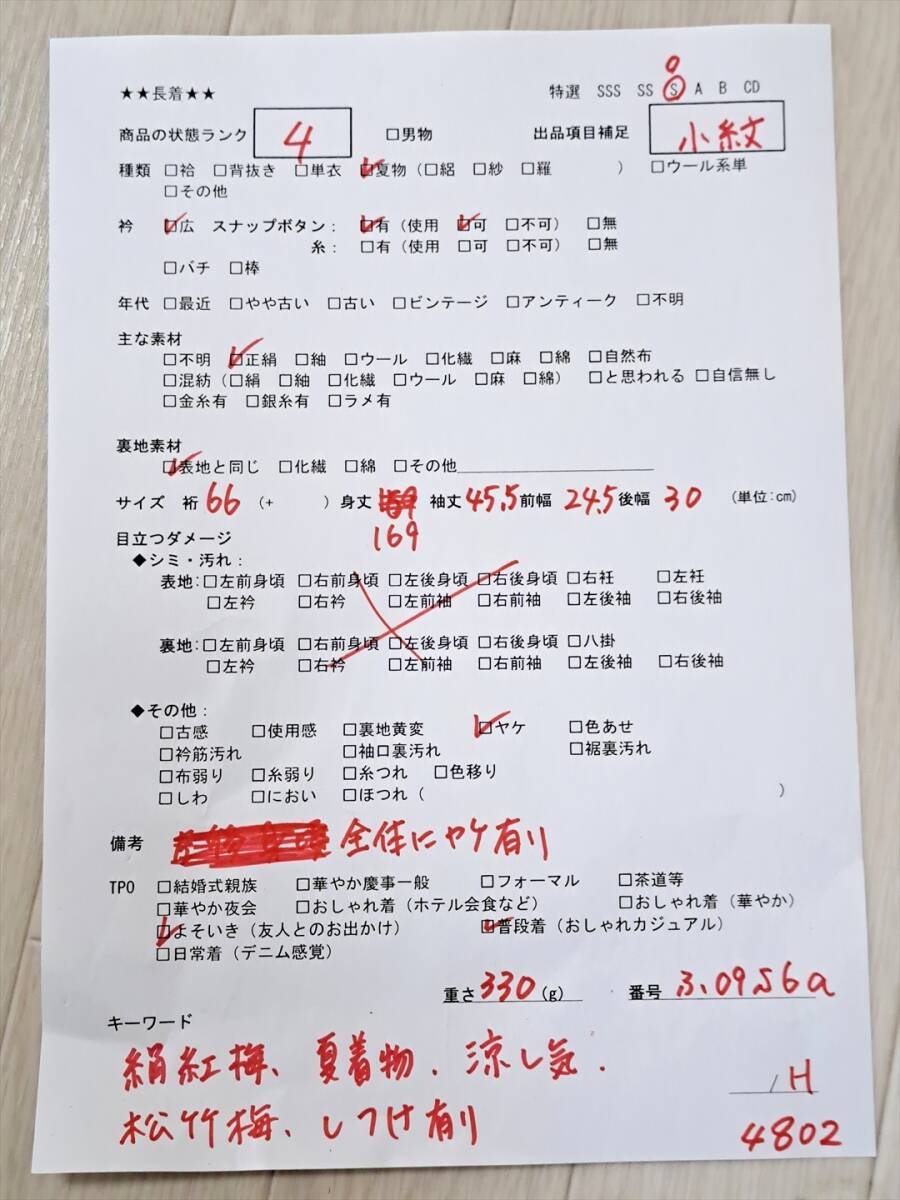 ★★長着★★ 特選 SSS SS S A B CD
商品の状態ランク 4 □男物 出品項目補足 小紋
種類 □袷 □背抜き □単衣 ☑夏物（□絽 □紗 □羅 ） □ウール系単
□その他
衿 ☑広 スナップボタン： ☑有（使用 ☑可 □不可） □無
糸：□有（使用 □可 □不可） □無
□バチ □棒
年代 □最近 □やや古い □古い □ビンテージ □アンティーク □不明
主な素材
□不明 ☑正絹 □紬 □ウール □化繊 □麻 □綿 □自然布
□混紡（□絹 □紬 □化繊 □ウール □麻 □綿） □と思われる □自信無し
□金糸有 □銀糸有 □ラメ有
裏地素材
☑表地と同じ □化繊 □綿 □その他
サイズ 裄 66 （+ ） 身丈 袖丈 45.5 前幅 24.5 後幅 30 （単位:cm）
169
目立つダメージ
◆シミ・汚れ：
表地:□左前身頃 □右前身頃 □左後身頃 □右後身頃 □右衽 □左衽
□左衿 □右衿 □左前袖 □右前袖 □左後袖 □右後袖
裏地:□左前身頃 □右前身頃 □左後身頃 □右後身頃 □八掛
□左衿 □右衿 □左前袖 □右前袖 □左後袖 □右後袖
◆その他：
□古感 □使用感 □裏地黄変 ☑ヤケ □色あせ
□衿筋汚れ □袖口裏汚れ □裾裏汚れ
□布弱り □糸弱り □糸つれ □色移り
□しわ □におい □ほつれ（ ）
備考 全体にヤケ有り
TPO □結婚式親族 □華やか慶事一般 □フォーマル □茶道等
□華やか夜会 □おしゃれ着（ホテル会食など） □おしゃれ着（華やか）
☑よそいき（友人とのお出かけ） ☑普段着（おしゃれカジュアル）
□日常着（デニム感覚）
重さ 330 (g) 番号 3.0956a
キーワード
絹紅梅、夏着物、涼し気、
/H
松竹梅、しつけ有り
4802